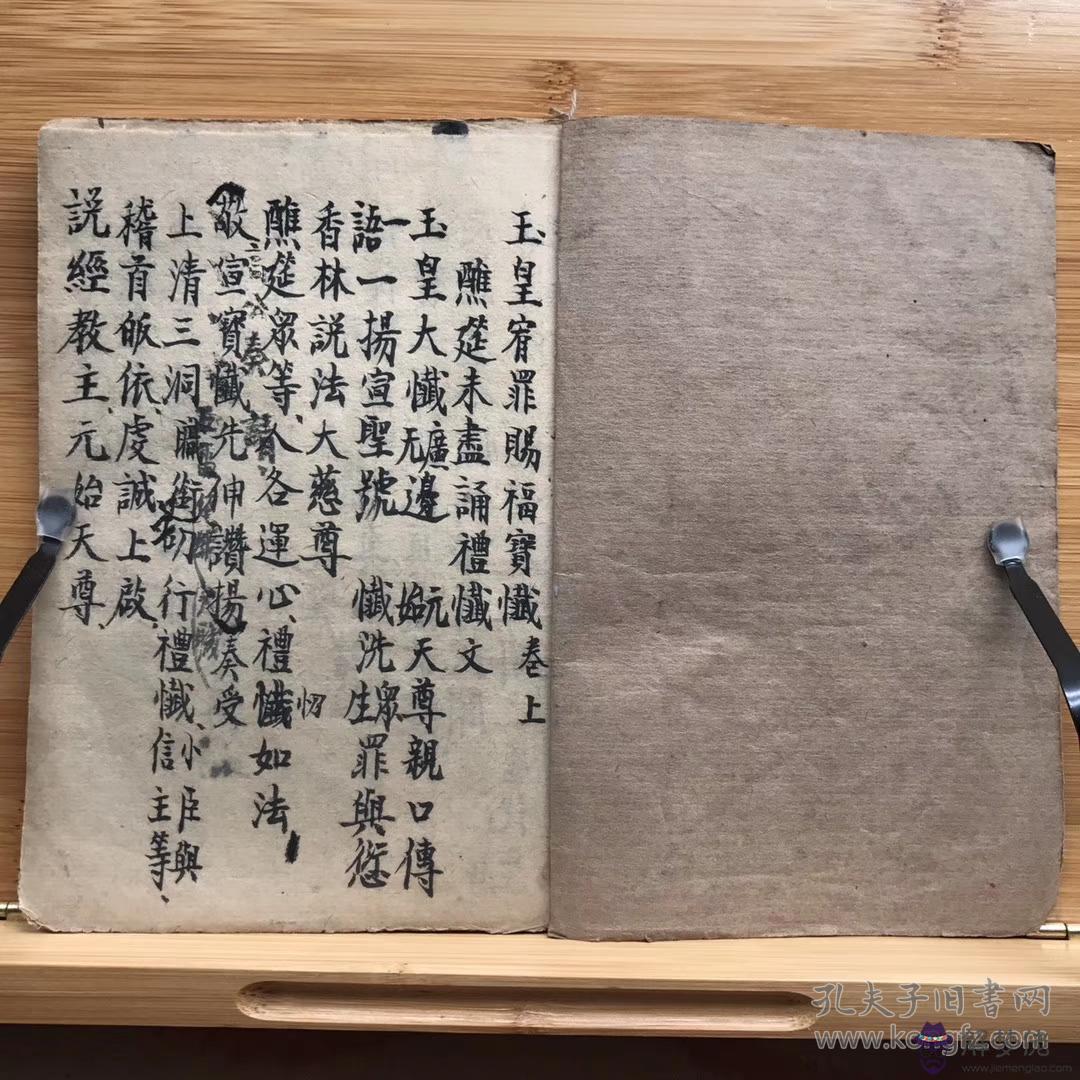 玉皇宥罪賜福寶懺卷上
醮筵未盡誦禮懺文
玉皇大懺廣无邊 元始天尊親口傳
一語一揚宣聖號 懺洗眾生罪與愆
香林説法大慈尊
醮筵眾等、人各運心、禮懺如法
敬宣寶懺先伸讚揚奏受
上清三洞職銜 行禮懺、小臣與信主等、
稽首皈依、虔誠上啟、
説經教主、元始天尊、
孔夫子旧书网
www.kongfz.com
解梦说
www.jiemengluo.com